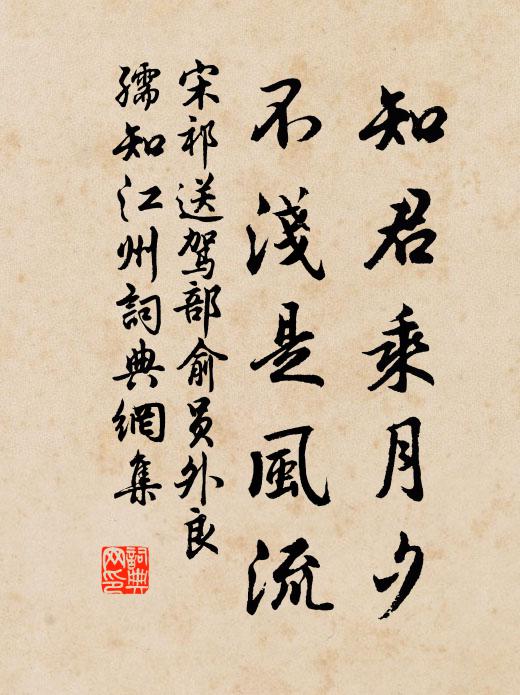 知君乘月夕
不淺是風流
宋祁送駕部俞員外良
孺知江州詞典網集
詞典
网印